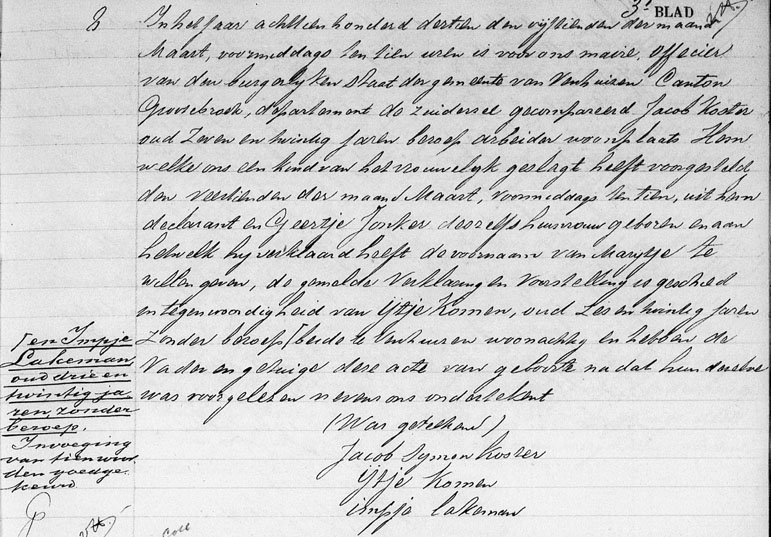 3e BLAD
8
In het jaar achttien honderd dertien den vijftienden der maand
Maart, voormiddags ten tien uren is voor ons maire, officier
van den burgerlyken staat der gemeente van Venhuizen Canton
Grootebroek, departement de zuiderzee gecompareerd Jacob Koster
oud Zeven en twintig jaren beroep arbeider woonplaats Hem
welke ons een kind van het vrouwelyk geslagt heeft voorgesteld,
den veertienden der maand Maart, voormiddags ten tien, uit hem
declarant en Geertje Jonker deszelfs huisvrouw geboren en aan
hetwelk hy verklaard heeft de voornaam van Marytje te
willen geven, de gemelde verklaring en voorstelling is geschied
in tegenwoordigheid van IJtje Komen, oud Zes en twintig jaren
zonder beroep [beide te Venhuizen woonachtig en hebben de
Vader en getuige dese acte van geboorte na dat hun deselve
was voorgelezen nevens ons ondertekent
(Was getekend)
Jacob Symon Koster
IJtje Komen
impje lakeman
[en Impje
Lakeman,
oud drie en
twintig ja-
ren, zonder
beroep.
Invoeging
van tien woor
den goedge
keurd